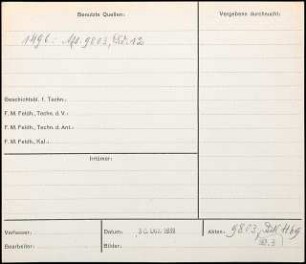 Benutzte Quellen:
Vergebens durchsucht:
1496: 9803, Bd. 12
Geschichtsbl. f. Techn.:
F. M. Feldh., Techn. d. V.:
F. M. Feldh., Techn. d. Ant.:
F. M. Feldh., Kal.:
Irrtümer:
Verfasser:
Datum:
Akten: 9803,
Bearbeiter:
Bilder: